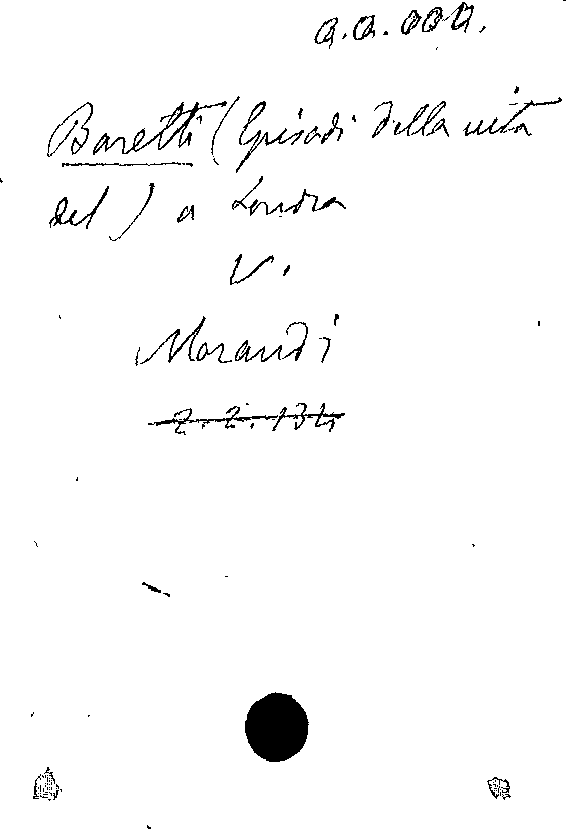 Baretti (Episodi della vita
del) a Londra
V.
Morandi
2.2.134